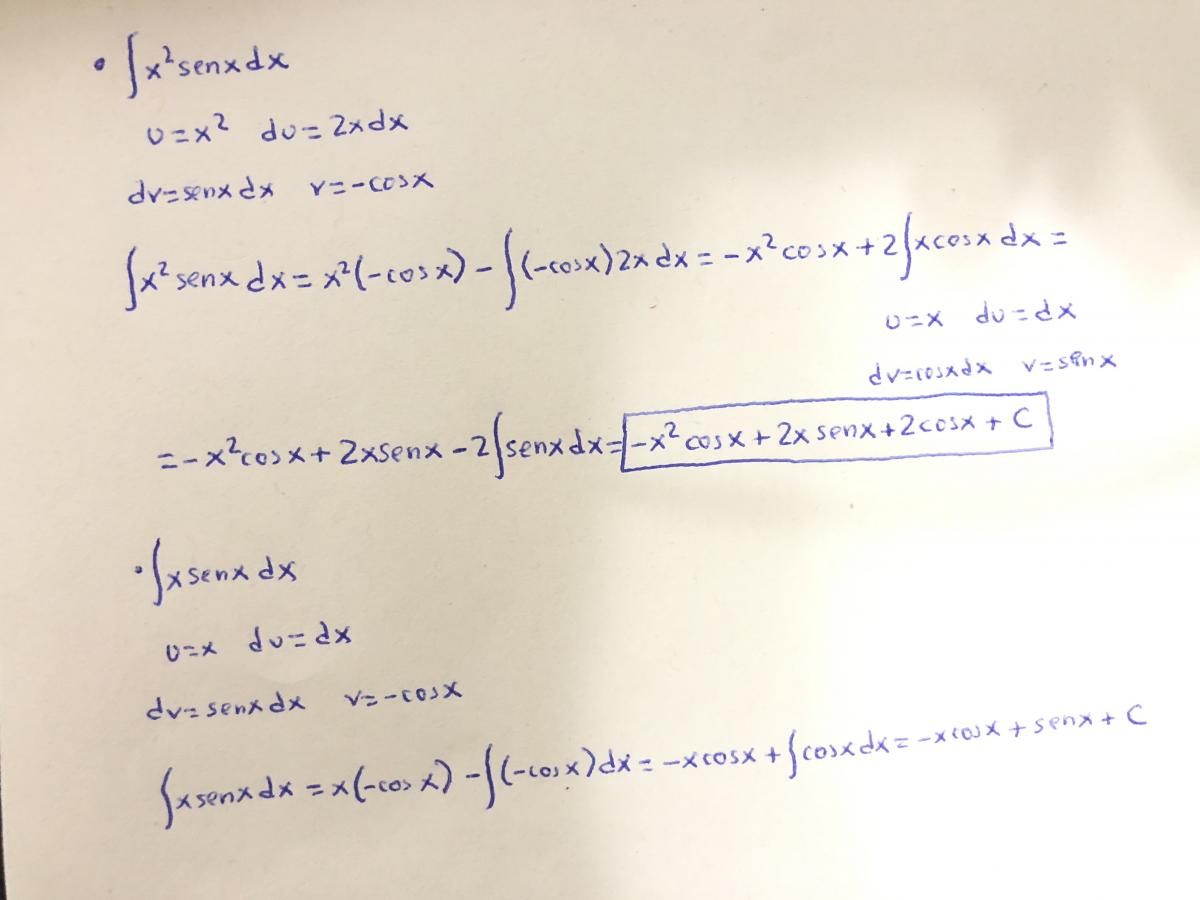 • ∫x²senxdx
u=x² du=2xdx
dv=senxdx v=-cosx
∫x²senxdx=x²(-cosx)-∫(-cosx)2xdx=-x²cosx+2∫xcosxdx=
u=x du=dx
dv=cosxdx v=senx
=-x²cosx+2xsenx-2∫senxdx=-x²cosx+2xsenx+2cosx+C
• ∫xsenxdx
u=x du=dx
dv=senxdx v=-cosx
∫xsenxdx=x(-cosx)-∫(-cosx)dx=-xcosx+∫cosxdx=-xcosx+senx+C